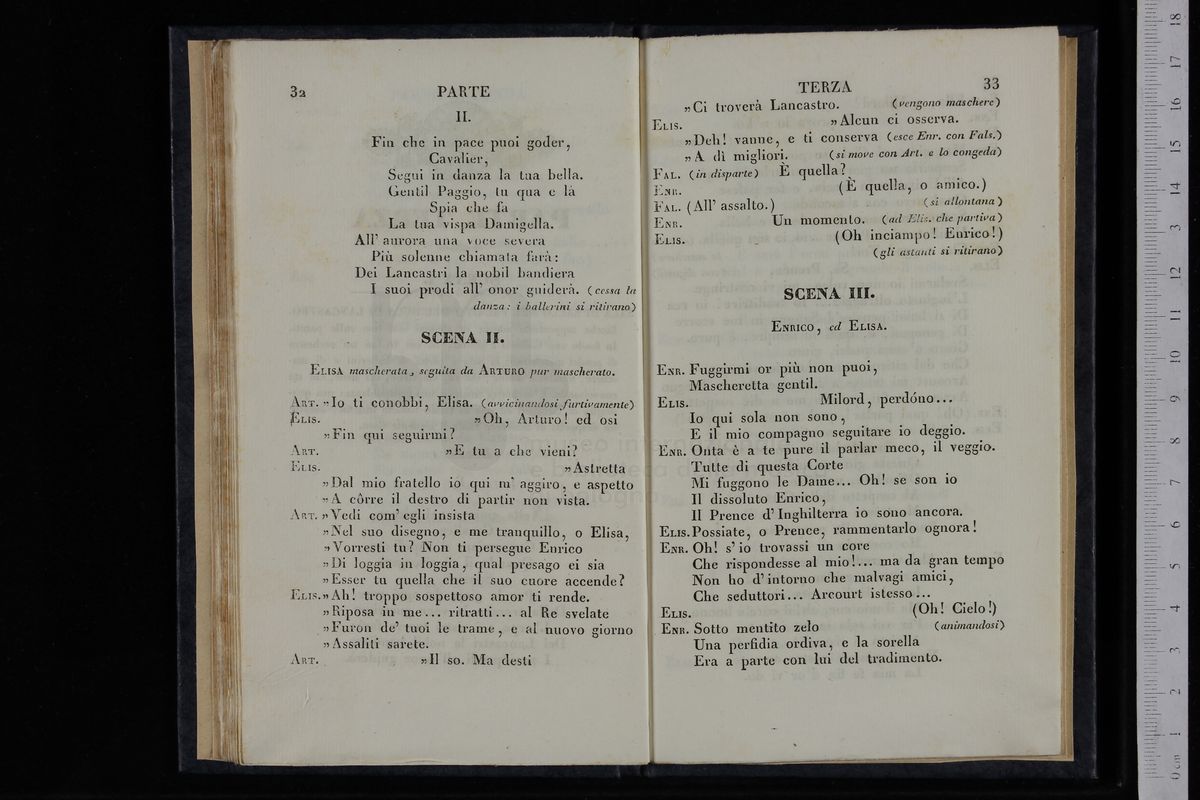 32 PARTE
II.
Fin che in pace puoi goder,
Cavalier,
Segui in danza la tua bella.
Gentil Paggio, tu qua e là
Spia che fa
La tua vispa Damigella.
All' aurora una voce severa
Più solenne chiamata farà:
Dei Lancastri la nobil bandiera
I suoi prodi all' onor guiderà. (cessa la
danza: i ballerini si ritirano)
SCENA II.
ELISA mascherata, seguita da ARTURO pur mascherato.
ART. "Io ti conobbi, Elisa. (avvicinandosi furtivamente)
ELIS. "Oh, Arturo! ed osi
"Fin qui seguirmi?
ART. "E tu a che vieni?
ELIS. "Astretta
"Dal mio fratello io qui m' aggiro, e aspetto
"A côrre il destro di partir non vista.
ART. "Vedi com' egli insista
"Nel suo disegno, e me tranquillo, o Elisa,
"Vorresti tu? Non ti persegue Enrico
"Di loggia in loggia, qual presago ei sia
"Esser tu quella che il suo cuore accende?
ELIS. "Ah! troppo sospettoso amor ti rende.
"Riposa in me... ritratti... al Re svelate
"Furon de' tuoi le trame, e al nuovo giorno
"Assaliti sarete.
ART. "Il so. Ma desti
TERZA 33
"Ci troverà Lancastro. (vengono maschere)
ELIS. "Alcun ci osserva.
"Deh! vanne, e ti conserva (esce Enr. con Fals.)
"A dì migliori. (si move con Art. e lo congeda)
FAL. (in disparte) È quella?
ENR. (È quella, o amico.)
FAL. (All' assalto.) (si allontana)
ENR. Un momento. (ad Elis. che partiva)
ELIS. (Oh inciampo! Enrico!)
(gli astanti si ritirano)
SCENA III.
ENRICO, ed ELISA.
ENR. Fuggirmi or più non puoi,
Mascheretta gentil.
ELIS. Milord, perdóno...
Io qui sola non sono,
E il mio compagno seguitare io deggio.
ENR. Onta è a te pure il parlar meco, il veggio.
Tutte di questa Corte
Mi fuggono le Dame... Oh! se son io
Il dissoluto Enrico,
Il Prence d' Inghilterra io sono ancora.
ELIS. Possiate, o Prence, rammentarlo ognora!
ENR. Oh! s' io trovassi un core
Che rispondesse al mio!... ma da gran tempo
Non ho d' intorno che malvagi amici,
Che seduttori... Arcourt istesso...
ELIS. (Oh! Cielo!)
ENR. Sotto mentito zelo (animandosi)
Una perfidia ordiva, e la sorella
Era a parte con lui del tradimento.
0 cm 1 2 3 4 5 6 7 8 9 10 11 12 13 14 15 16 17 18